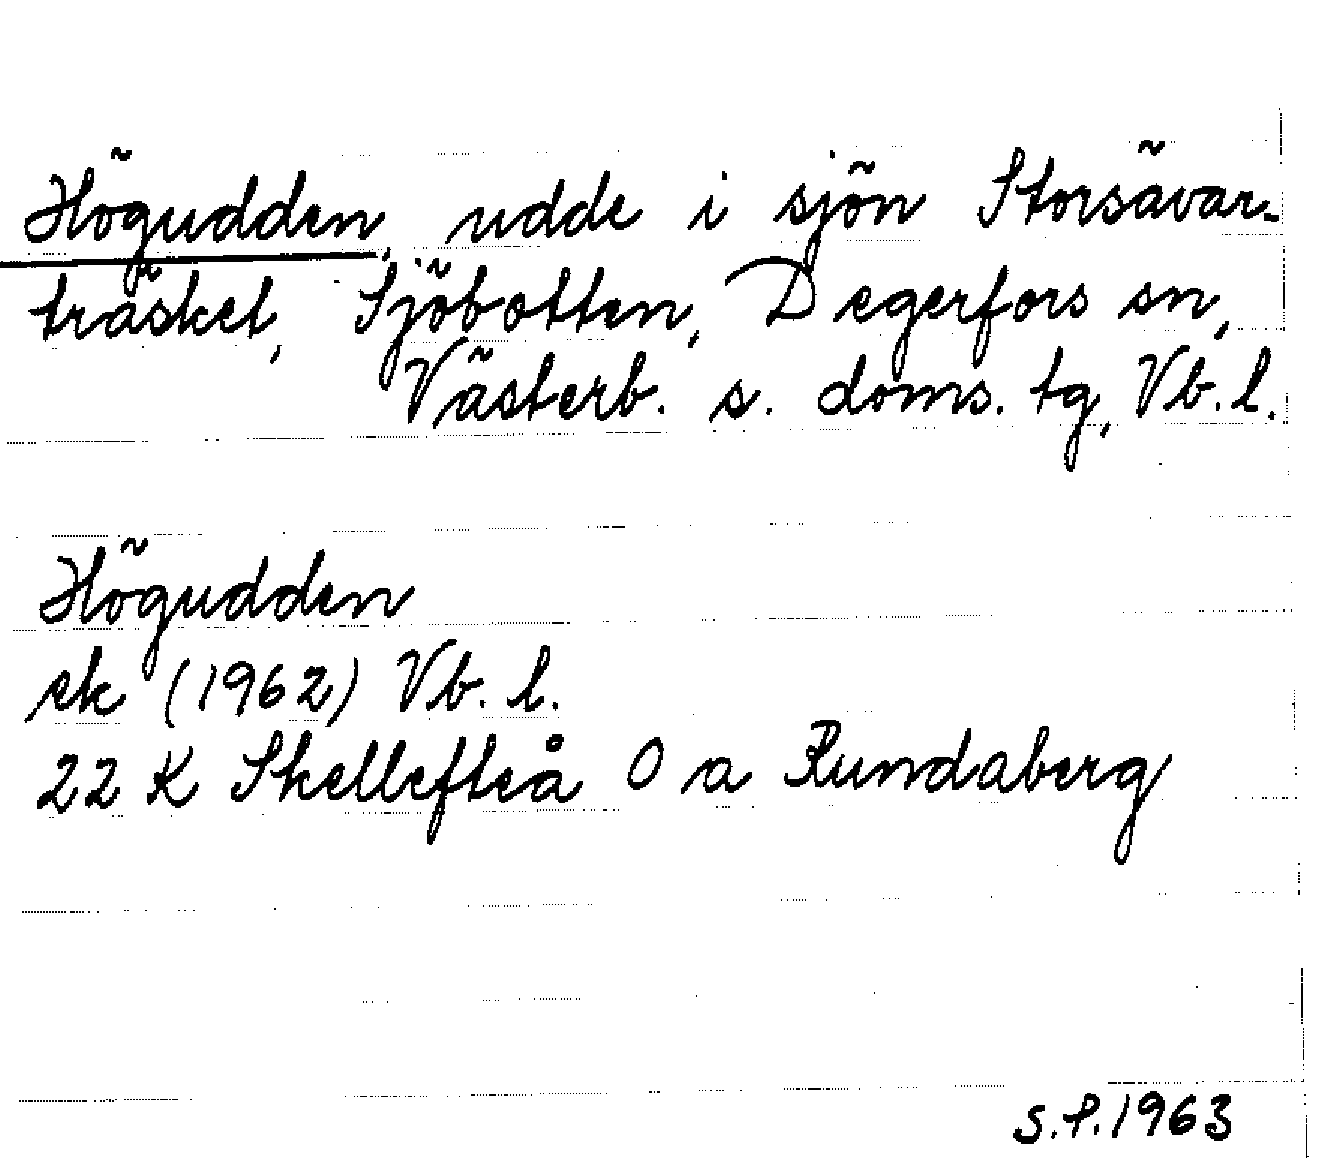 Högudden, udde i sjön Storsävar-
träsket, Sjöbotten, Degerfors sn,
Västerb. s. doms. tg, Vb. l.
Högudden
ek (1962) Vb. l.
22 K Skellefteå O a Rundaberg
S.P. 1963